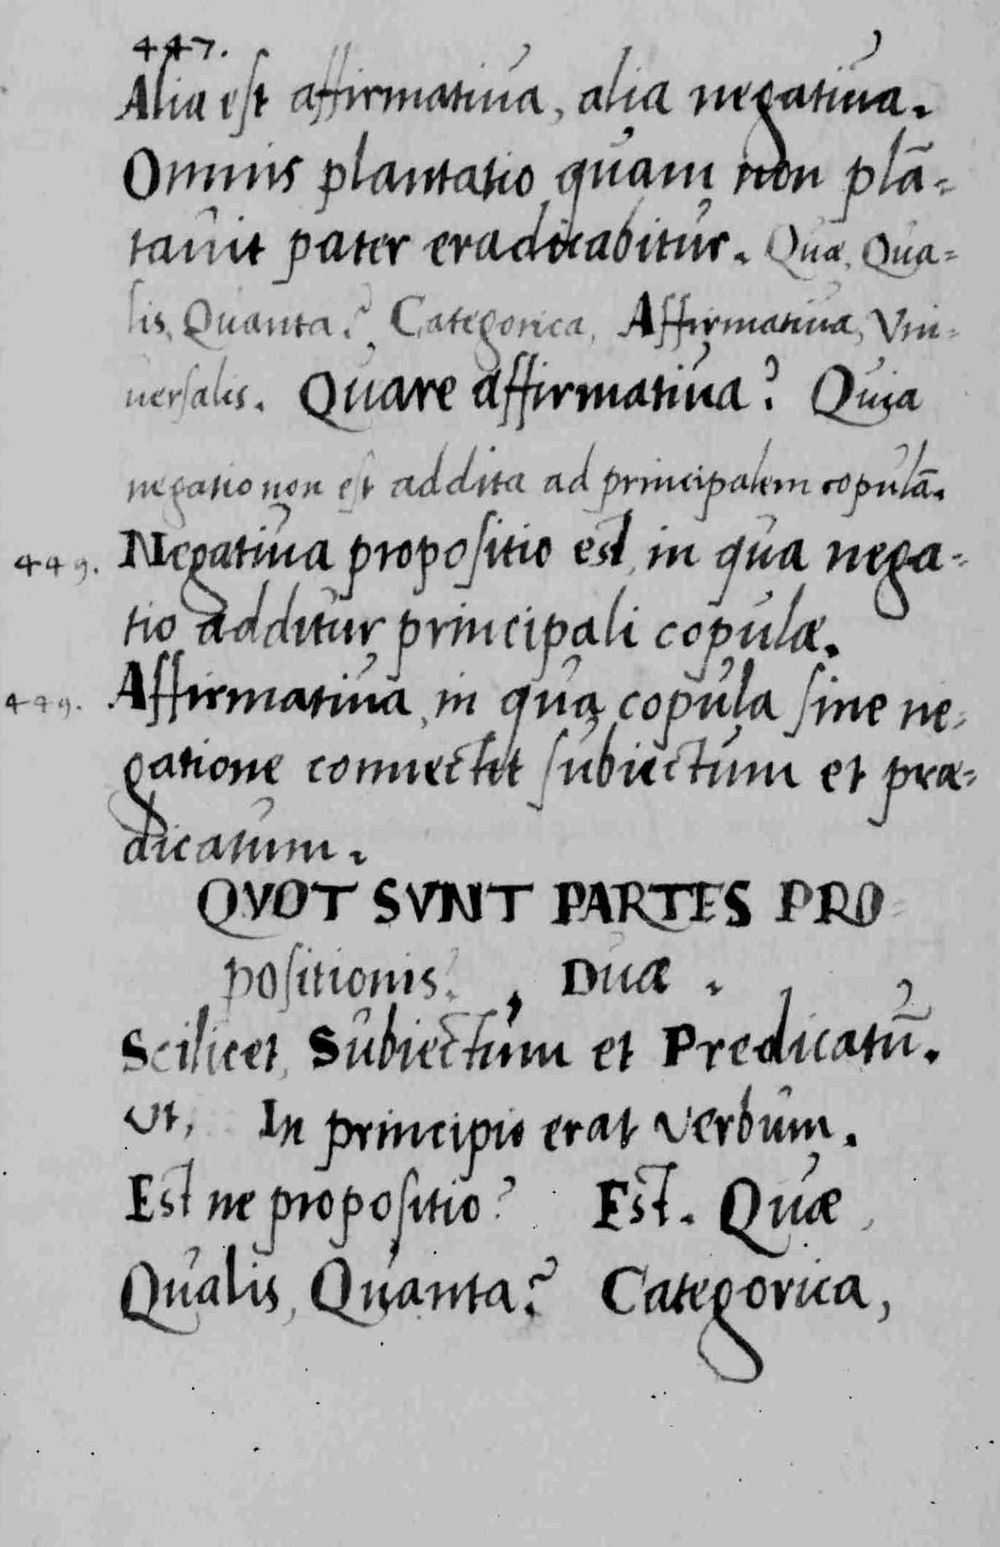 447.
Alia est affirmatiua, alia negatiua.
Omnis plantatio quam non plā=
tauit pater eradicabitur. Quæ, Qua=
lis, Quanta? Categorica, Affirmatiua, Vni=
uersalis. Quare affirmatiua? Quia
negatio non est addita ad principalem copulā.
449. Negatiua propositio est, in qua nega=
tio additur principali copulæ.
449. Affirmatiua, in qua copula sine ne=
gatione connectit subiectum et præ=
dicatum.
QVOT SVNT PARTES PRO=
positionis? Duæ.
Scilicet, Subiectum et Predicatū.
Vt, In principio erat Verbum.
Est ne propositio? Est. Quæ,
Qualis, Quanta? Categorica,